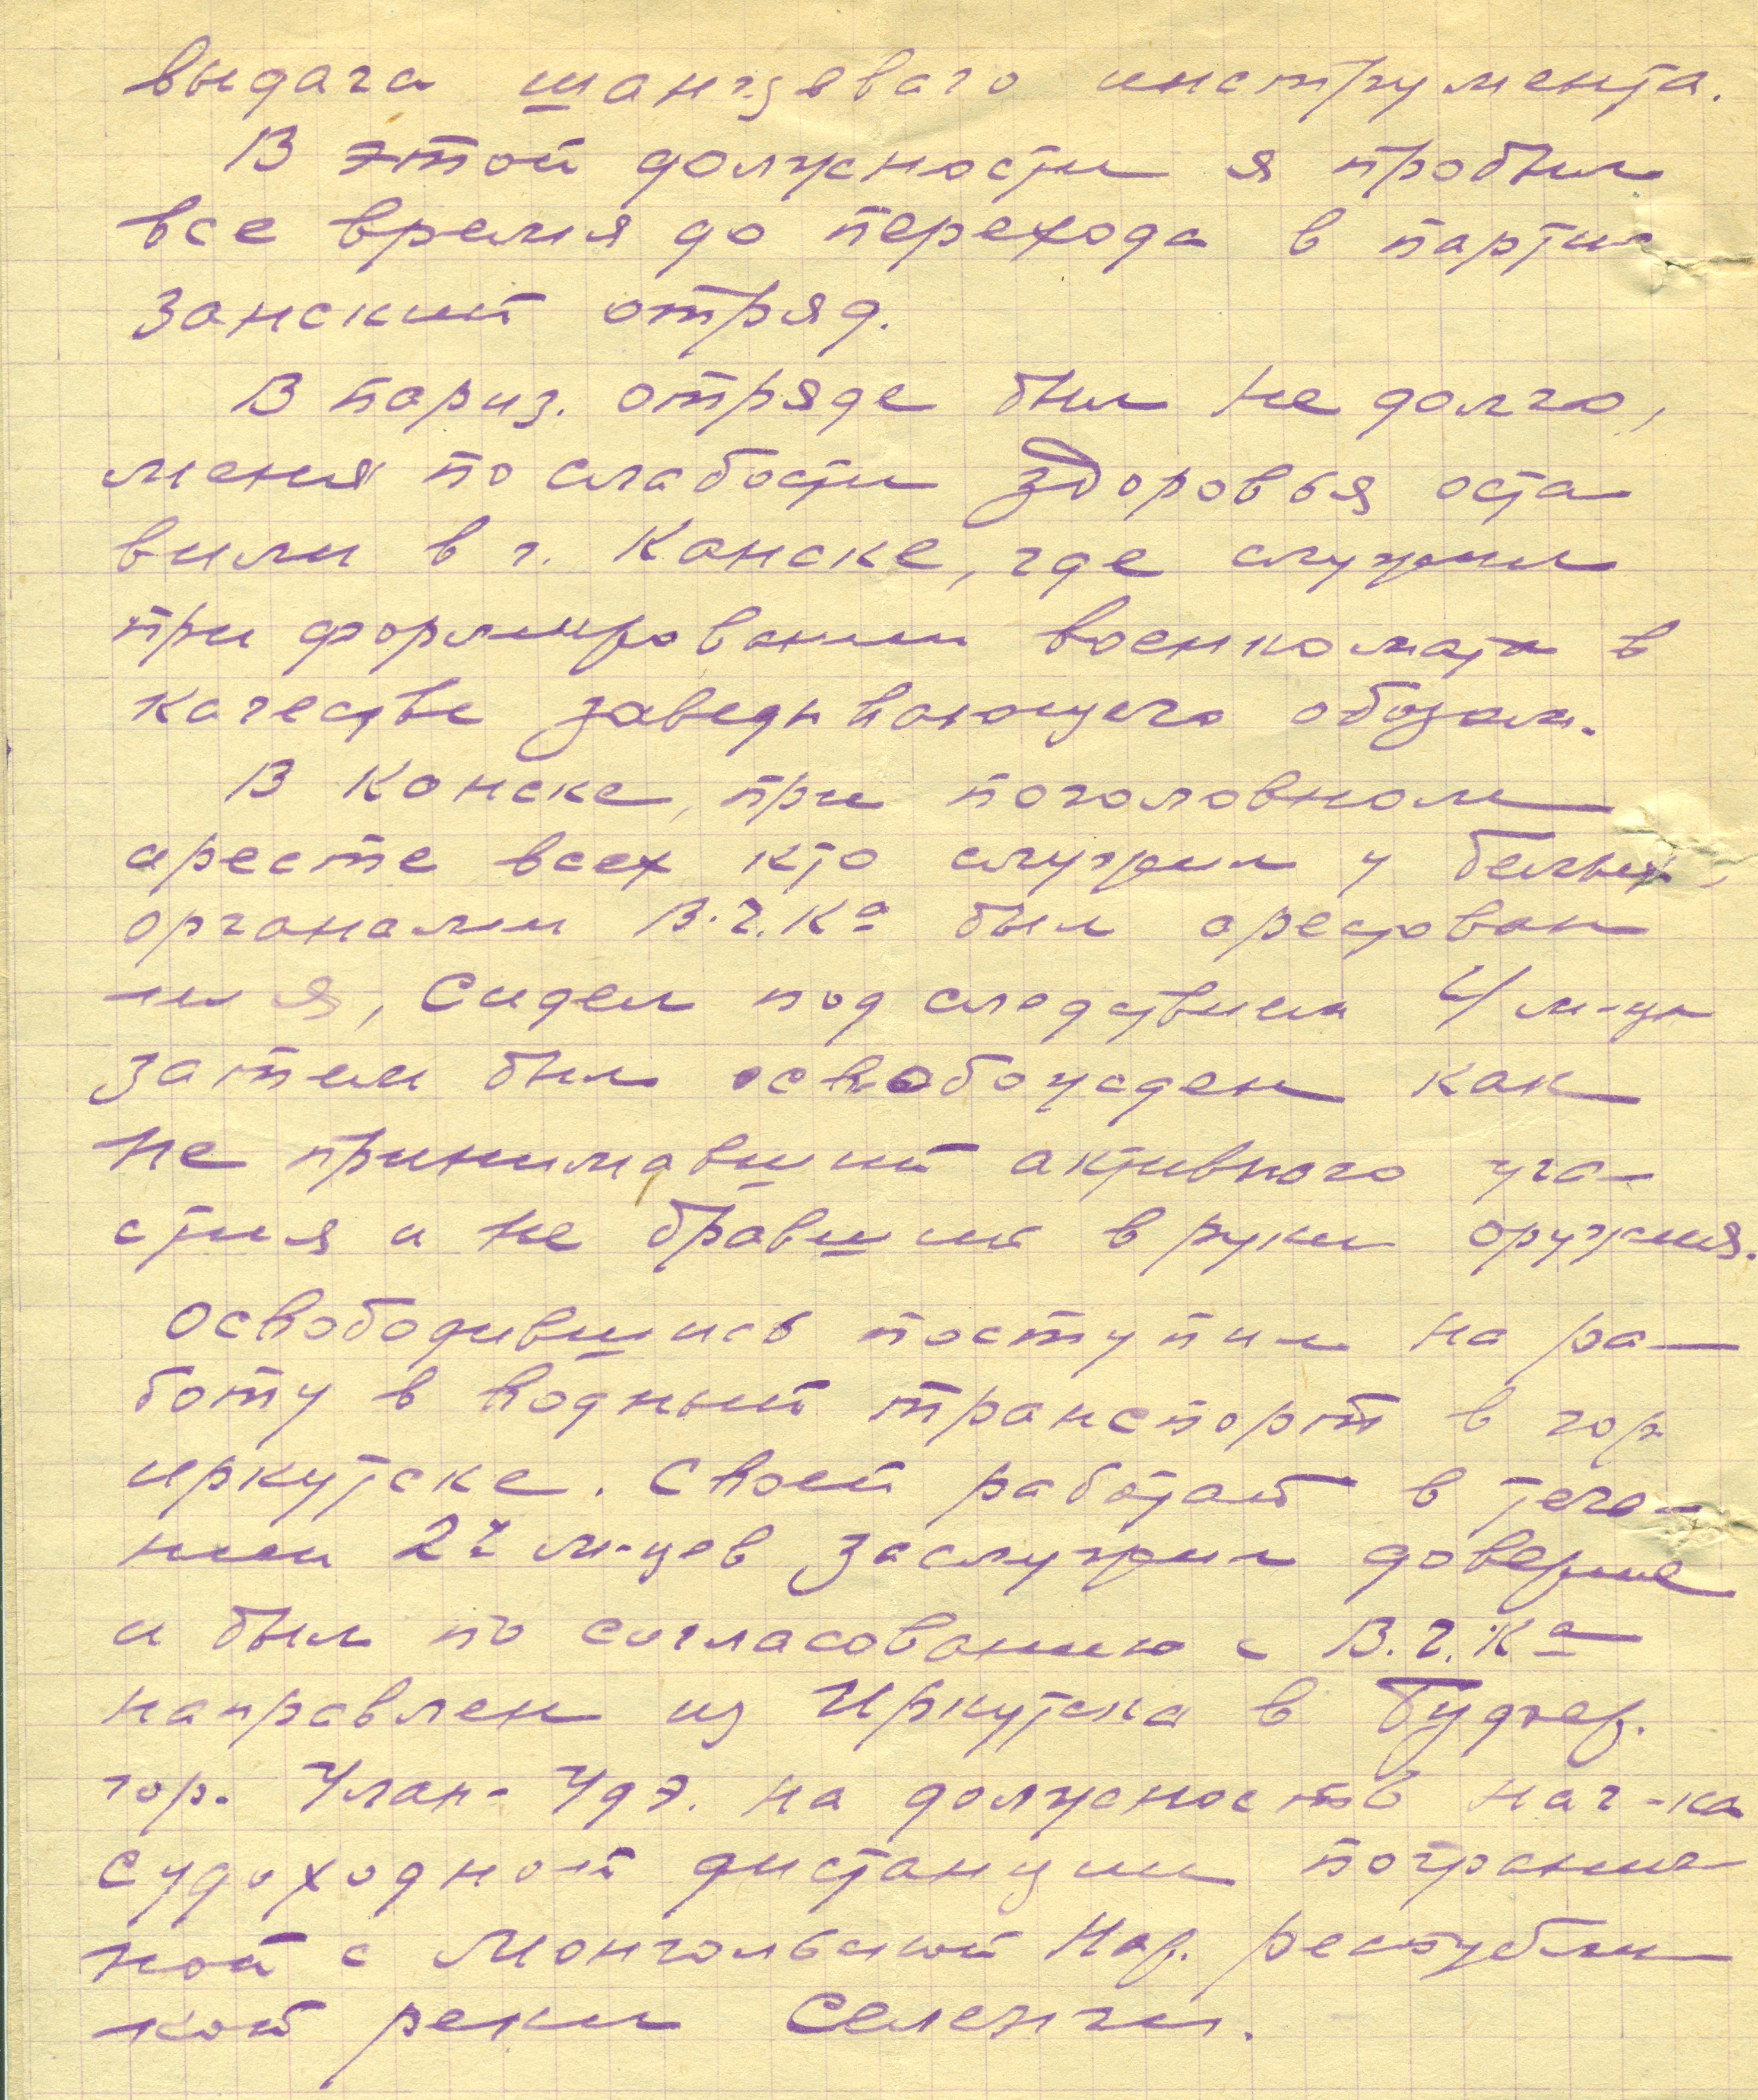 выдача шанцеваго инструмента.
В этой должности я пробыл
все время до перехода в парти
занский отряд.
В париз. отряде был не долго,
меня по слабости здоровья оста
вили в г. Канске, где служил
при формировании военкомата в
качестве заведывающего обозам.
В Канске, при поголовном
аресте всех кто служил у белых,
органами В.Ч.Ка был арестован
и я, сидел под следствием 4 м-ца
затем был освобожден как
не принимавший активного уча-
стия и не бравший в руки оружия.
Освободившись поступил на ра-
боту в водный транспорт в гор
Иркутске. Своей работай в тече-
нии 2х м-цев заслужил доверие
и был по согласованию с В.Ч.Ка
направлен из Иркутска в
гор. Улан-Удэ. на должность нач-ка
судоходной дистанции погранич
ной с Монгольской Нар. республи
кой реки Селенги.